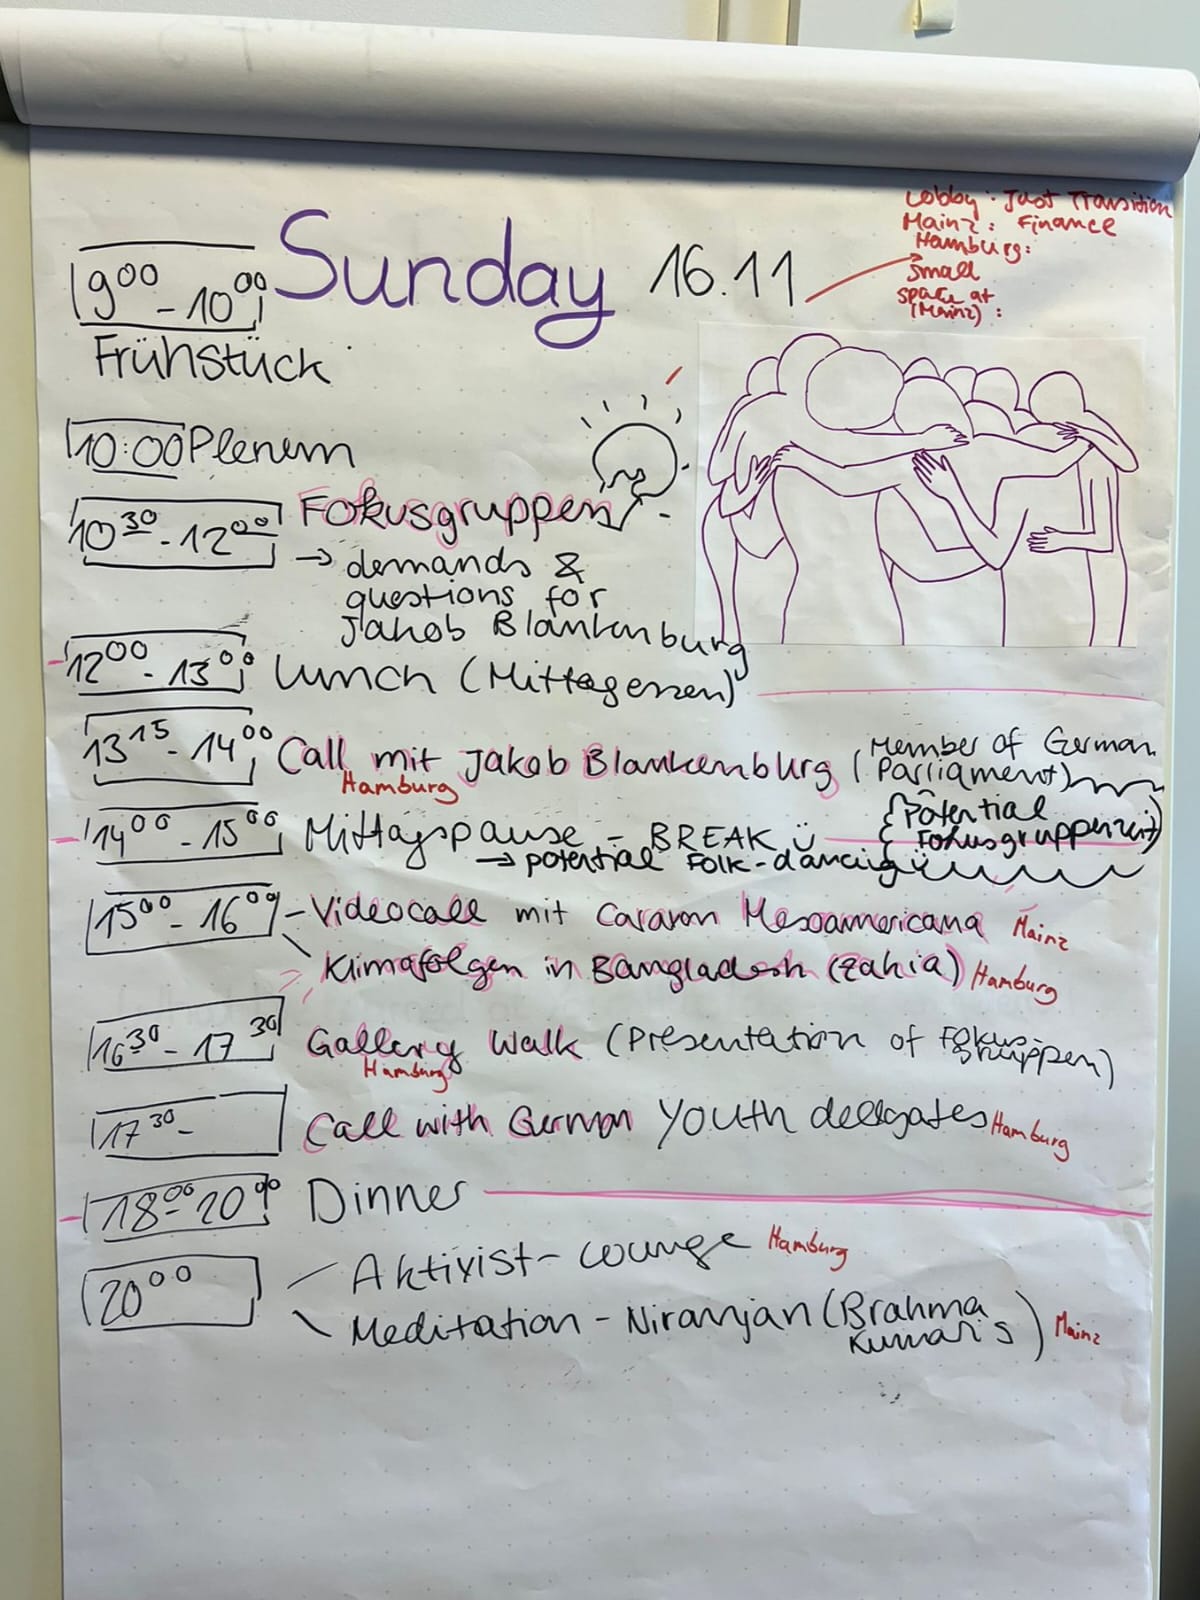 Lobby: Just Transition
Mainz: Finance
Hamburg:
small
space at
(Mainz):
Sunday 16.11
9⁰⁰ - 10⁰⁰
Frühstück
10:00 Plenum
10³⁰ - 12⁰⁰ Fokusgruppen
→ demands &
questions for
Jakob Blankenburg
12⁰⁰ - 13⁰⁰ Lunch (Mittagessen)
13¹⁵ - 14⁰⁰ Call mit Jakob Blankenburg (Member of German
Parliament)
Hamburg
{Potential
Fokusgruppenzeit)
14⁰⁰ - 15⁰⁰ Mittagspause - BREAK ü
→ potential Folk-dancing ü
15⁰⁰ - 16⁰⁰ - Videocall mit Caravan Mesoamericana Mainz
Klimafolgen in Bangladesh (Zakia) Hamburg
16³⁰ - 17³⁰ Gallery Walk (Presentation of Fokus-
gruppen)
Hamburg
17³⁰ - Call with German Youth delegates Hamburg
18⁰⁰ - 20⁰⁰ Dinner
20⁰⁰ Aktivist-Lounge Hamburg
Meditation - Niranjan (Brahma
Kumaris) Mainz